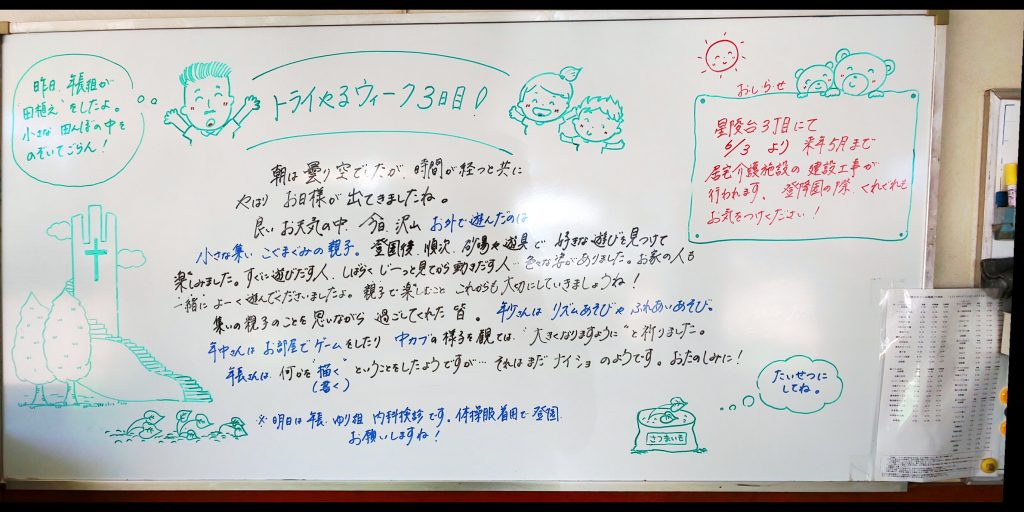 昨日、年長組が
"田植え"をしたよ。
小さな田んぼの中を
のぞいてごらん！
トライやるウィーク3日目！
おしらせ
星陵台3丁目にて
6/3 より 来年5月まで
居宅介護施設の建設工事が
行われます。登降園の際、くれぐれも
お気をつけください！
朝は曇り空でしたが、時間が経つと共に
やはり お日様が出てきましたね。
良いお天気の中、今日、沢山お外で遊んだのは
小さな集い、こぐまぐみの親子。登園後、順次、砂場や遊具で 好きな遊びを見つけて
楽しみました。すぐに遊びだす人、しばらくじーっと見てから動きだす人… 色々な姿がありました。お家の人も
一緒によーく遊んでくださいましたよ。親子で楽しむこと これからも大切にしていきましょうね！
集いの親子のことを思いながら 過ごしてくれた皆。 年少さんは リズムあそびや ふれあいあそび。
年中さんは お部屋でゲームをしたり 中カブの様子を観ては、"大きくなりますように"と祈りました。
年長さんは 何かを"描く"ということをしたようですが… それはまだ ナイショ のようです。おたのしみに！
(書く)
※明日は年長 ゆり組 内科検診です。体操服着用で登園
お願いしますね！
たいせつに
してね。
さつまいも